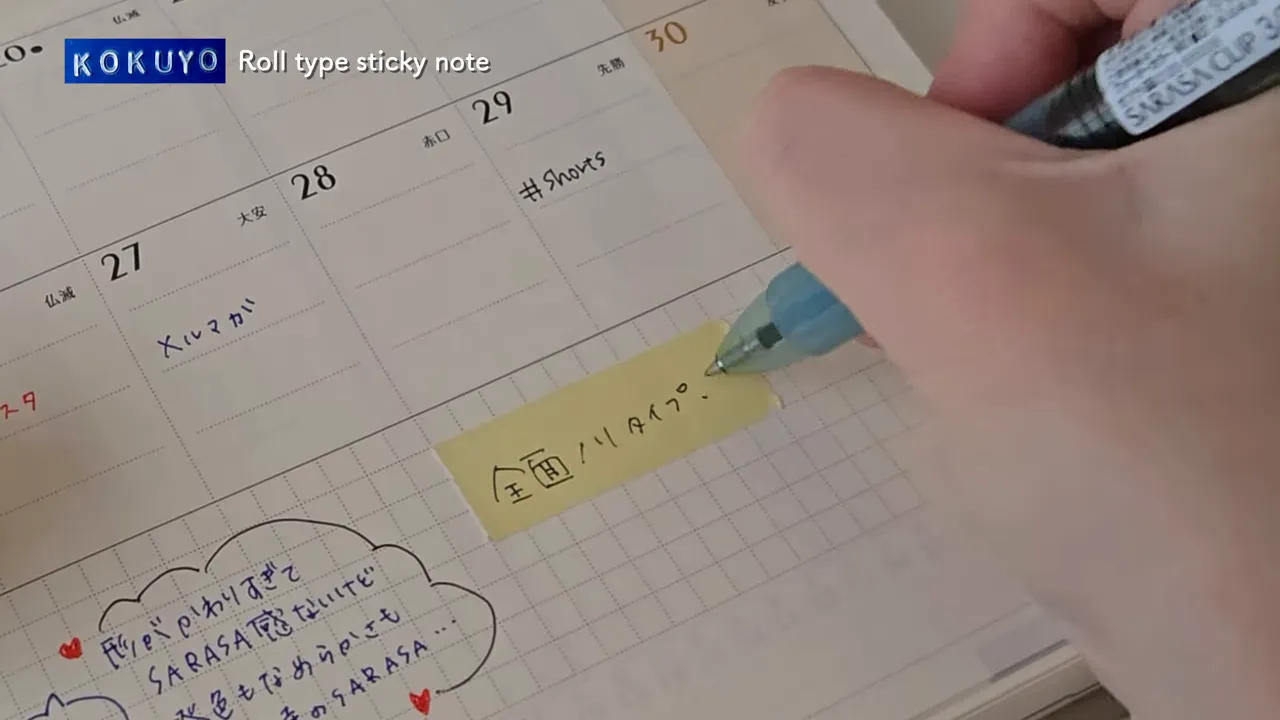 KOKUYO Roll type sticky note
仏滅
30
先勝
29
#shorts
赤口
28
大安
27
メルマガ
仏滅
スタ
全面ノリタイプ、
形がかわりすぎて
SARASA感ないけど
色もなめらかさも
のSARASA…
SARASA CLIP